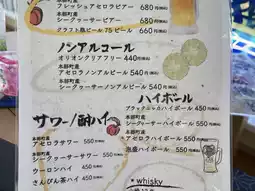 本部町産
フレッシュアセロラビアー 680円(税込)
本部町産
シークヮーサービアー 680円(税込)
クラフト瓶ビール 75ビール 660円(税込)
ノンアルコール
オリオンクリアフリー 440円(税込)
本部町産
アセロラノンアルビール 540円(税込)
本部町産
シークヮーサーノンアルビール 540円(税込)
サワー/酎ハイ
本部町産
アセロラサワー 550円
本部町産
シークヮーサーサワー 550円
ウーロンハイ 450円
さんぴん茶ハイ 450円
ハイボール
ブラックニッカハイボール 450円(税込)
本部町産
シークヮーサーハイボール 550円(税込)
本部町産
アセロラハイボール 550円(税込)
泡盛ハイボール 550円(税込)
whisky